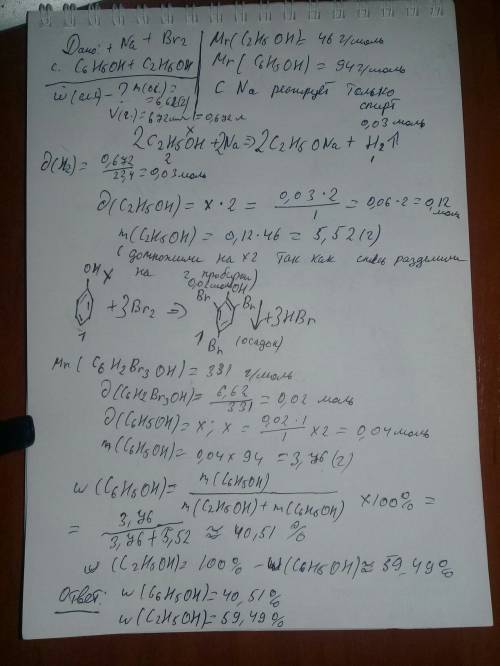 Дано: + Na + Br2
с. C6H5OH + C2H5OH
ω(сп) - ? m(ос) =
= 6,62(г)
V(г.) = 672мл = 0,672 л
Mr(C2H5OH) = 46 г/моль
Mr(C6H5OH) = 94 г/моль
С Na реагирует только
спирт
0,03 моль
x
2C2H5OH + 2Na => 2C2H5ONa + H2↑
2 1
∂(H2) = 0,672 / 22,4 = 0,03 моль
∂(C2H5OH) = x · 2 = 0,03 · 2 / 1 = 0,06 · 2 = 0,12 моль
m(C2H5OH) = 0,12 · 46 = 5,52 (г)
(домножили на x2 так как смесь разделили
на 2 пробирки)
OH x 0,02 моль OH
+ 3Br2 => Br Br Br ↓ + 3HBr
1 1 (осадок)
Mr(C6H2Br3OH) = 331 г/моль
∂(C6H2Br3OH) = 6,62 / 331 = 0,02 моль
∂(C6H5OH) = x; x = 0,02 · 1 / 1 x 2 = 0,04 моль
m(C6H5OH) = 0,04 x 94 = 3,76 (г)
ω(C6H5OH) = m(C6H5OH) / m(C2H5OH) + m(C6H5OH) x 100% =
= 3,76 / 3,76 + 5,52 ≈ 40,51 %
ω(C2H5OH) = 100% - ω(C6H5OH) ≈ 59,49%
Ответ: ω(C6H5OH) = 40,51%
ω(C2H5OH) = 59,49%